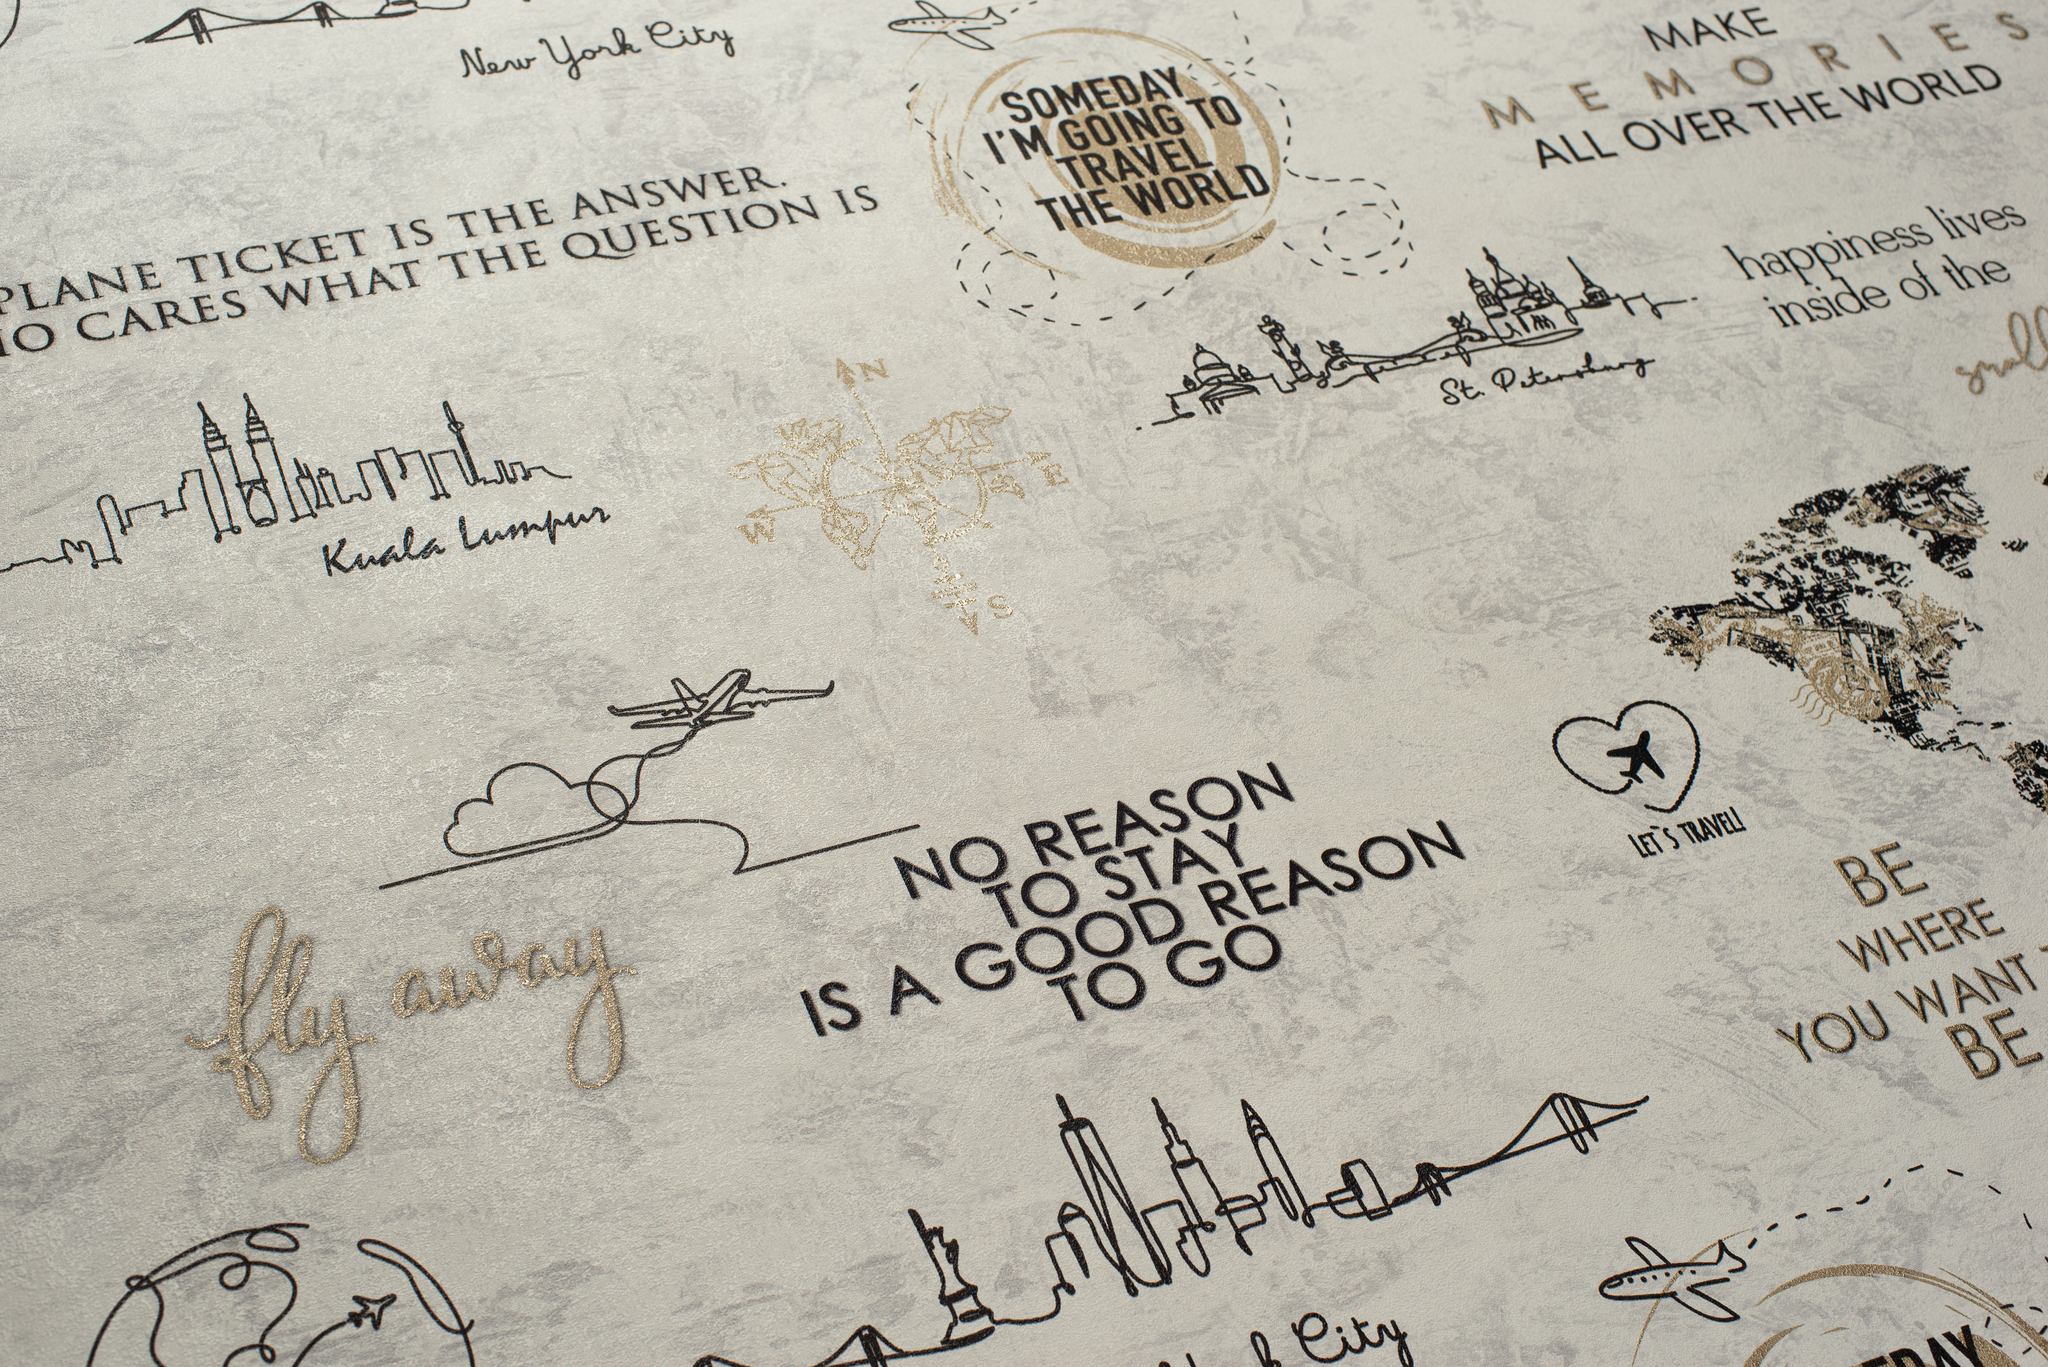 New York City
SOMEDAY
I'M GOING TO
TRAVEL
THE WORLD
MAKE
MEMORIES
ALL OVER THE WORLD
PLANE TICKET IS THE ANSWER.
CARES WHAT THE QUESTION IS
happiness lives
inside of the
St. Petersburg
Kuala Lumpur
N
W
E
S
NO REASON
TO STAY
IS A GOOD REASON
TO GO
LET'S TRAVEL!
BE
WHERE
YOU WANT
BE
fly away
City